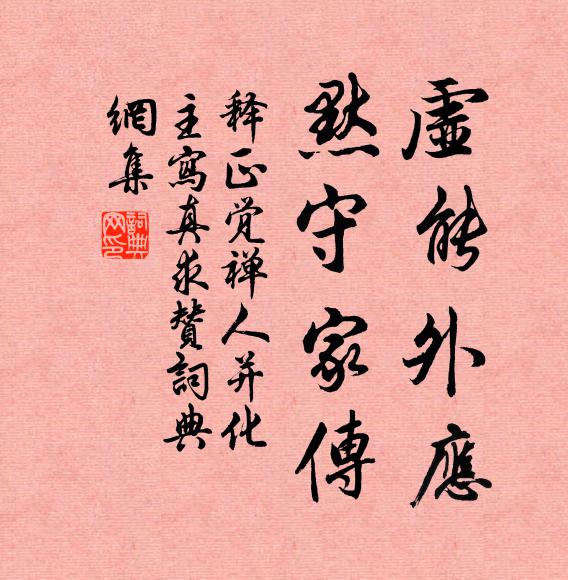 虛能外應
默守家傳
释正觉禅人并化
主寫真求贊詞典
網集
詞典網印